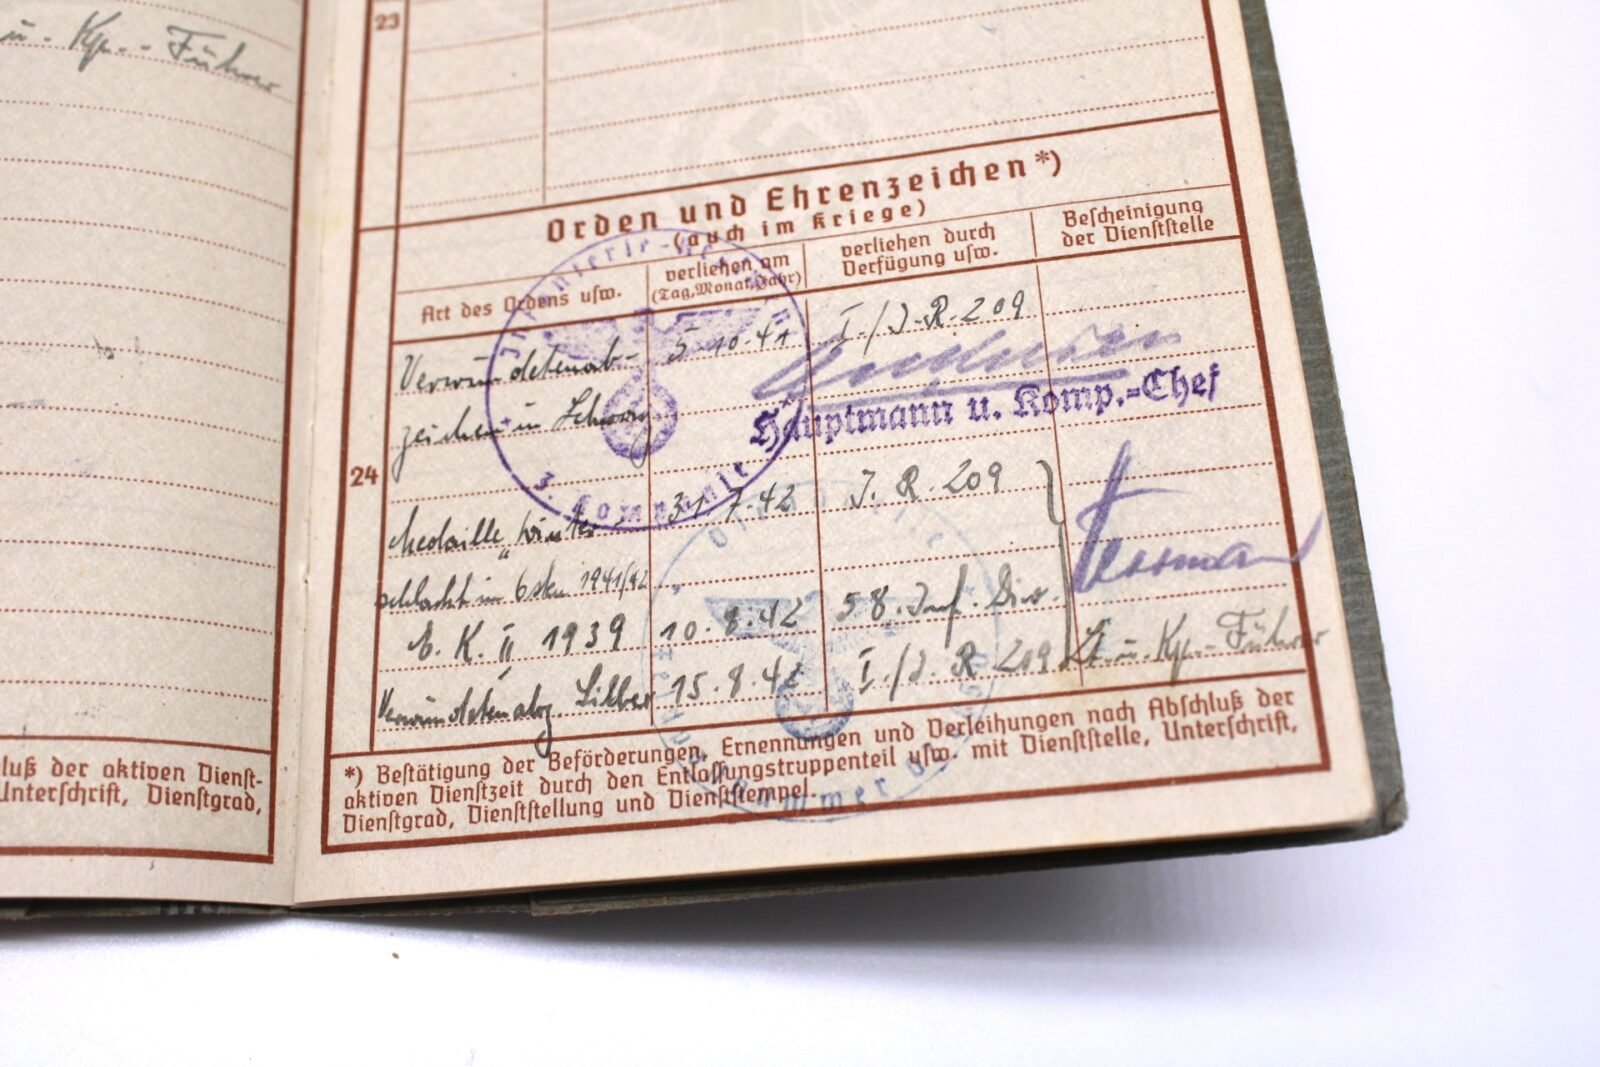 u. Kp.-Führer
luß der aktiven Dienst-
Unterschrift, Dienstgrad,
23
Orden und Ehrenzeichen *)
(auch im Kriege)
Art des Ordens usw.
verliehen am
(Tag, Monat, Jahr)
verliehen durch
Verfügung usw.
Bescheinigung
der Dienststelle
24
Verwundetenab- 5.10.41 I./J.R. 209
zeichen in Schwarz
Hauptmann u. Komp.-Chef
3. Kompanie
Medaille „Winter- 31.7.42 J.R. 209
schlacht im Osten 1941/42
E.K. II 1939 10.8.42 58. Inf. Div.
Verwundetenabz. Silber 15.8.42 I./J.R. 209 Lt. u. Kp.-Führer
*) Bestätigung der Beförderungen, Ernennungen und Verleihungen nach Abschluß der
aktiven Dienstzeit durch den Entlassungstruppenteil usw. mit Dienststelle, Unterschrift,
Dienstgrad, Dienststellung und Dienststempel.